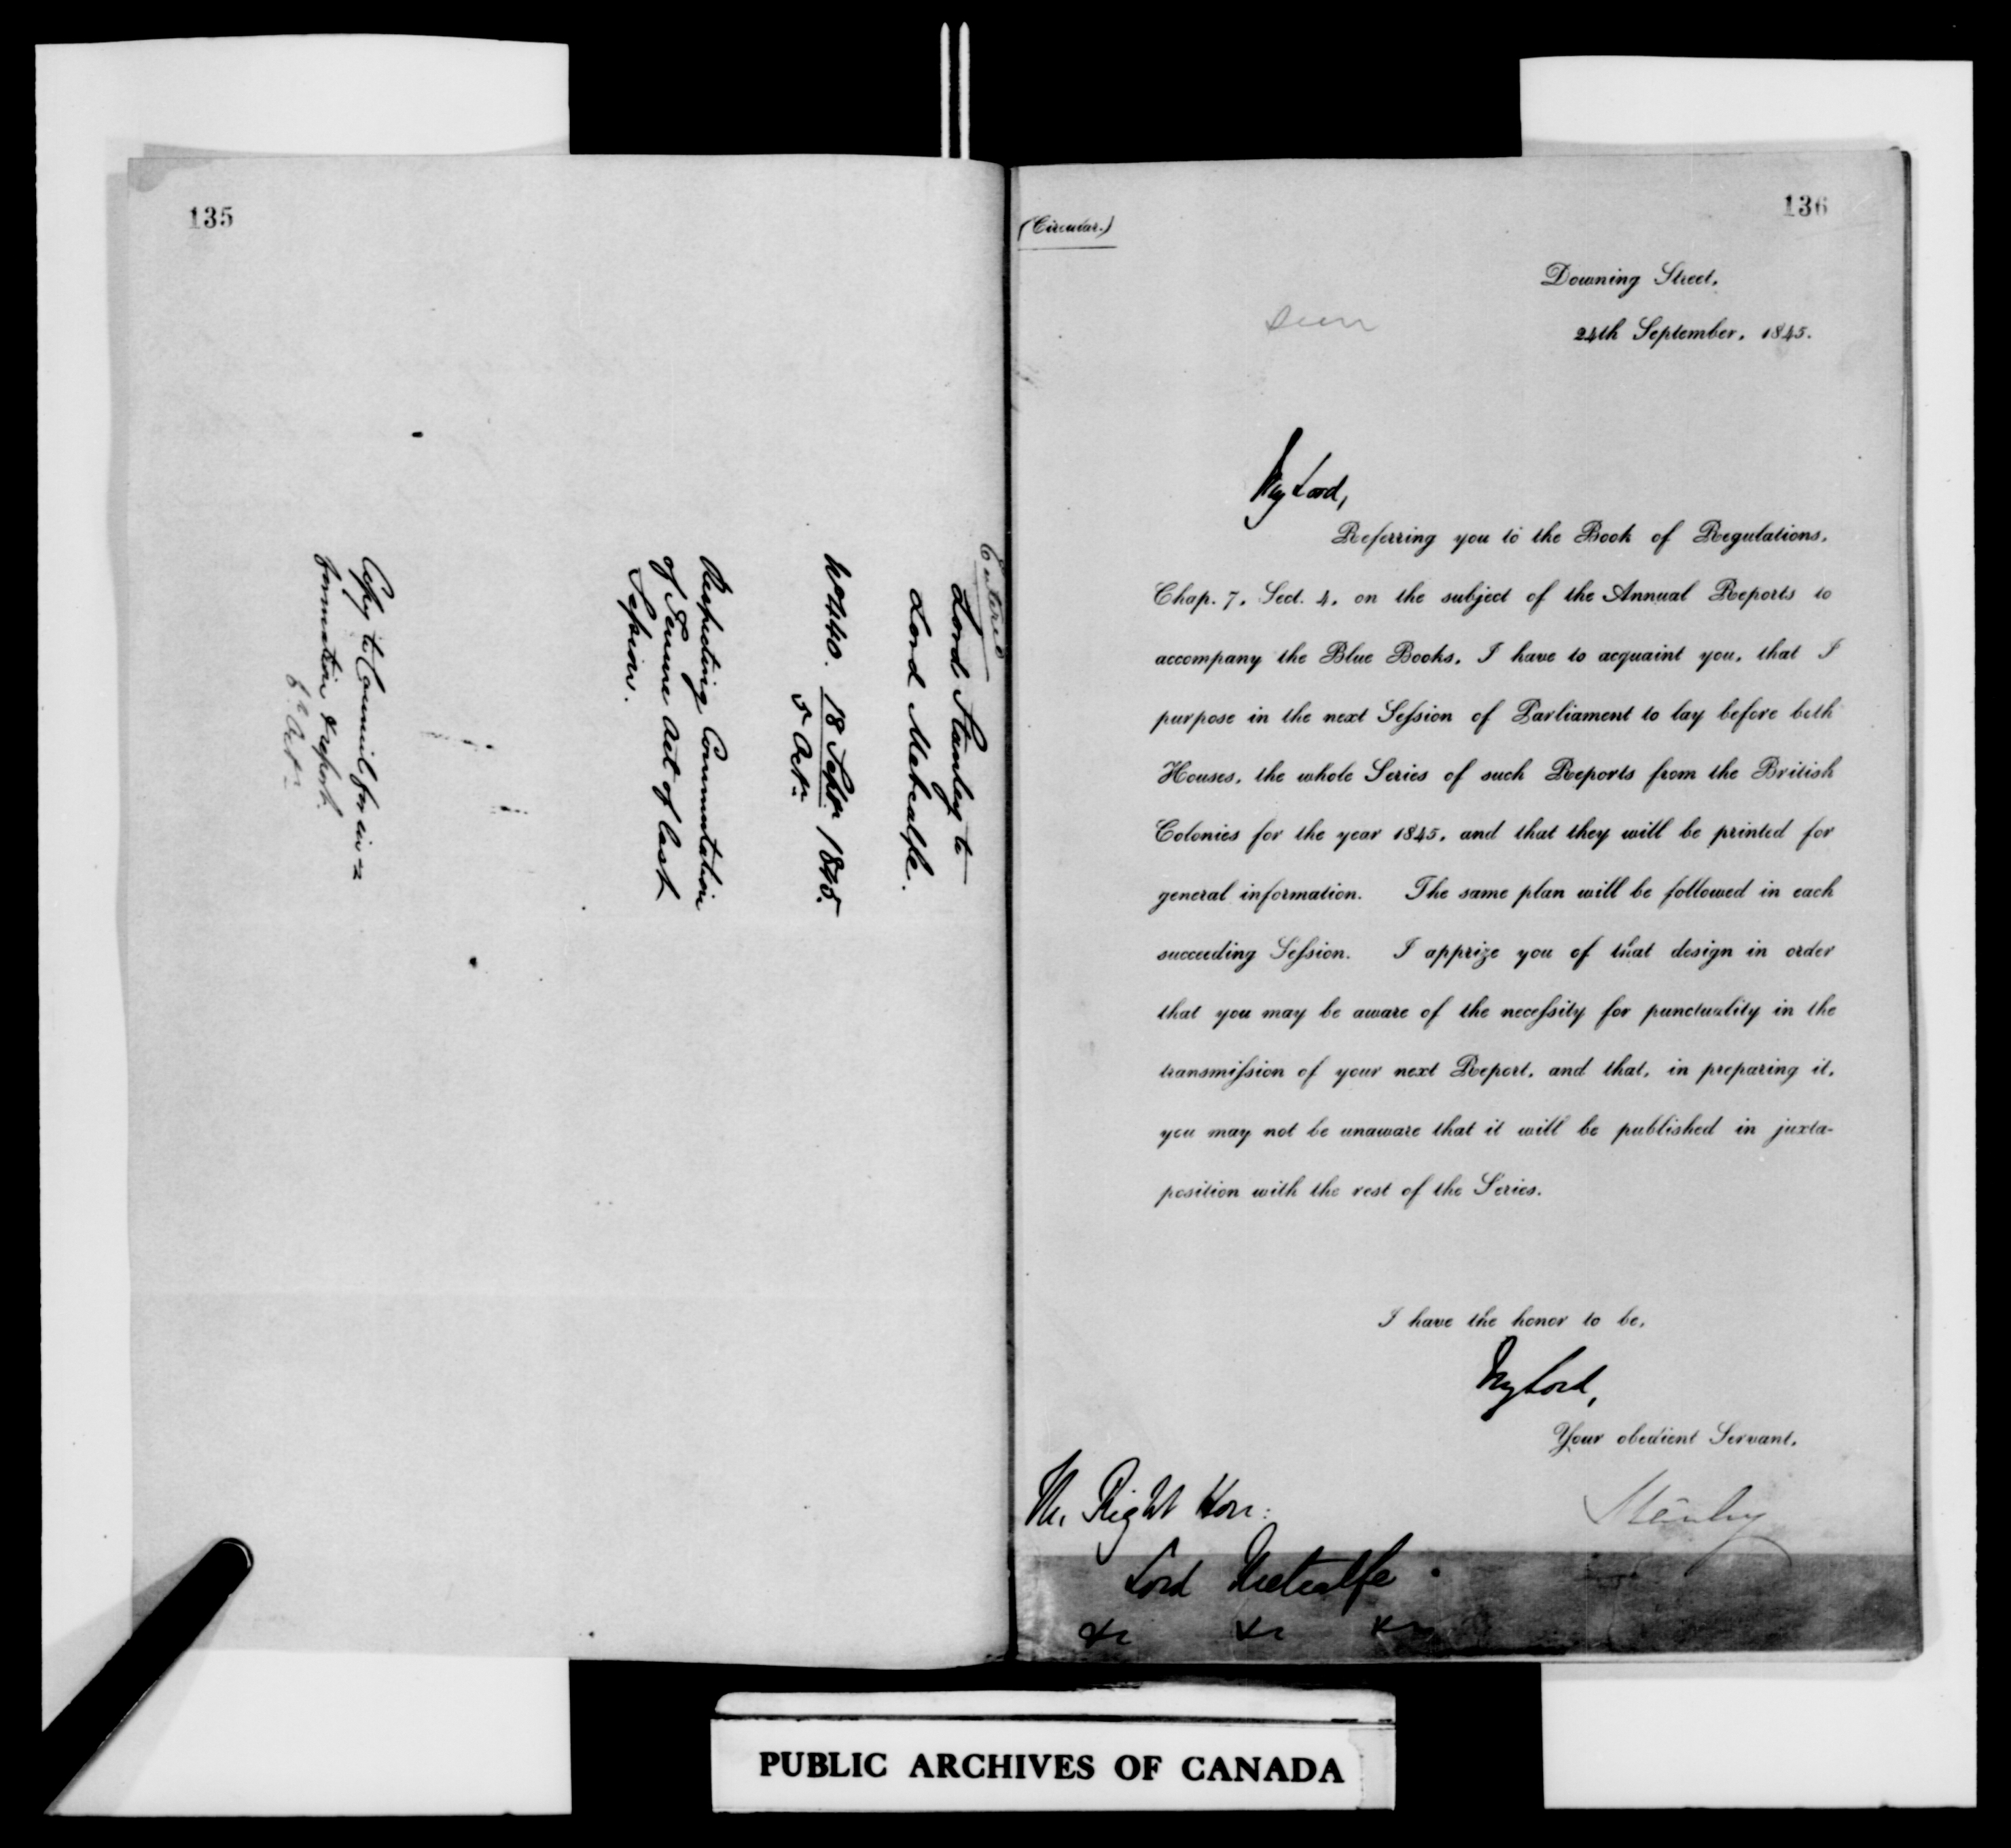 135
Entered
Lord Stanley to
Lord Metcalfe.
No 440. 18 Septr 1845.
5 Octr
Respecting Commutation
of Tenure Act of last
Session.
Copy to Council for in=
formation & report.
136
(Circular.)
Downing Street,
24th September, 1845.
seen
My Lord,
Referring you to the Book of Regulations,
Chap. 7, Sect. 4, on the subject of the Annual Reports to
accompany the Blue Books, I have to acquaint you, that I
purpose in the next Session of Parliament to lay before both
Houses, the whole Series of such Reports from the British
Colonies for the year 1845, and that they will be printed for
general information. The same plan will be followed in each
succeeding Session. I apprize you of that design in order
that you may be aware of the necessity for punctuality in the
transmission of your next Report, and that, in preparing it,
you may not be unaware that it will be published in juxta-
position with the rest of the Series.
I have the honor to be,
My Lord,
Your obedient Servant,
Stanley
The Right Hon:
Lord Metcalfe.
&c &c &c
PUBLIC ARCHIVES OF CANADA